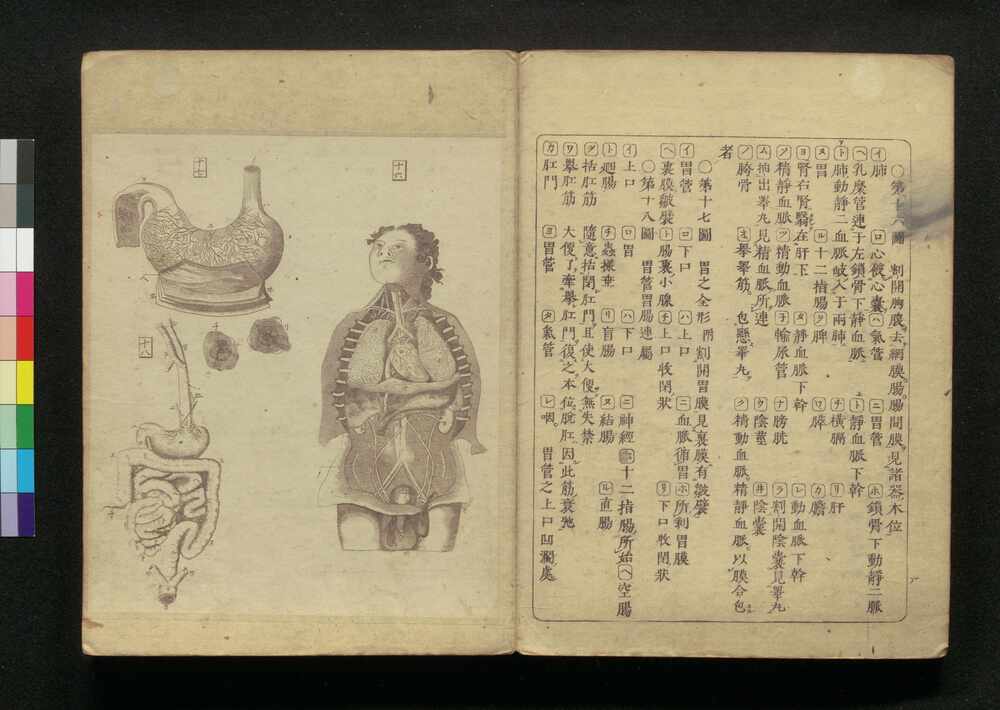 〇第十六圖 割開胸膜去網膜腸腸間膜見諸器本位
イ肺 ロ心假心囊 ハ氣管 ニ胃管 ホ鎖骨下動靜二脈
ヘ乳糜管連于左鎖骨下靜血脈 ト靜血脈下幹
ト肺動靜二血脈岐入于兩肺 チ橫膈 リ肝
ヌ胃 ル十二指腸 ヲ脾 ワ膵 カ膽
ヨ腎右腎翳在肝下 タ靜血脈下幹 レ動血脈下幹
ソ精靜血脈 ツ精動血脈 子輸尿管 ナ膀胱 ラ割開陰囊見睪丸
ム抽出睪丸見精血脈所連 ウ陰莖 井陰囊
ノ胯骨 オ擧睪筋包懸睪丸 ク精動血脈精靜血脈以膜合包
者
〇第十七圖 胃之全形 割開胃膜見裏膜有皺襞
イ胃管 ロ下口 ハ上口 ニ血脈循胃 ホ所剥胃膜
ヘ裏膜皺襞 ト腸裏小腺 チ上口收閉狀 リ下口收閉狀
〇第十八圖 胃管胃腸連屬
イ上口 ロ胃 ハ下口 ニ神經 十二指腸所始 ヘ空腸
ト廻腸 チ蟲樣垂 リ盲腸 ヌ結腸 ル直腸
ヲ括肛筋 隨意括閉肛門且使大便無失禁
ワ擧肛筋 大便了牽擧肛門復之本位脫肛因此筋衰弛
カ肛門 ヨ胃管 タ氣管 レ咽 胃管之上口凹濶處
十六
十七
十八